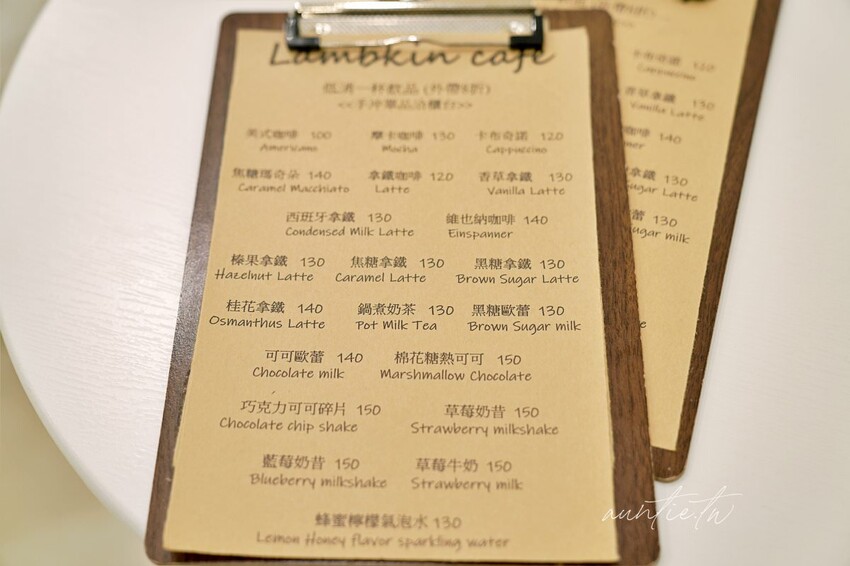 Lambkin cafe
低消一杯飲品 (外帶9折)
<<手沖單品洽櫃台>>
美式咖啡 100 摩卡咖啡 130 卡布奇諾 120
Americano Mocha Cappuccino
焦糖瑪奇朵 140 拿鐵咖啡 120 香草拿鐵 130
Caramel Macchiato Latte Vanilla Latte
西班牙拿鐵 130 維也納咖啡 140
Condensed Milk Latte Einspanner
榛果拿鐵 130 焦糖拿鐵 130 黑糖拿鐵 130
Hazelnut Latte Caramel Latte Brown Sugar Latte
桂花拿鐵 140 鍋煮奶茶 130 黑糖歐蕾 130
Osmanthus Latte Pot Milk Tea Brown Sugar milk
可可歐蕾 140 棉花糖熱可可 150
Chocolate milk Marshmallow Chocolate
巧克力可可碎片 150 草莓奶昔 150
Chocolate chip shake Strawberry milkshake
藍莓奶昔 150 草莓牛奶 150
Blueberry milkshake Strawberry milk
蜂蜜檸檬氣泡水 130
Lemon Honey flavor sparkling water
卡布奇諾 120
Cappuccino
香草拿鐵 130
Vanilla Latte
咖啡 140
nner
拿鐵 130
Sugar Latte
蕾 130
ugar milk
e
auntie.tw